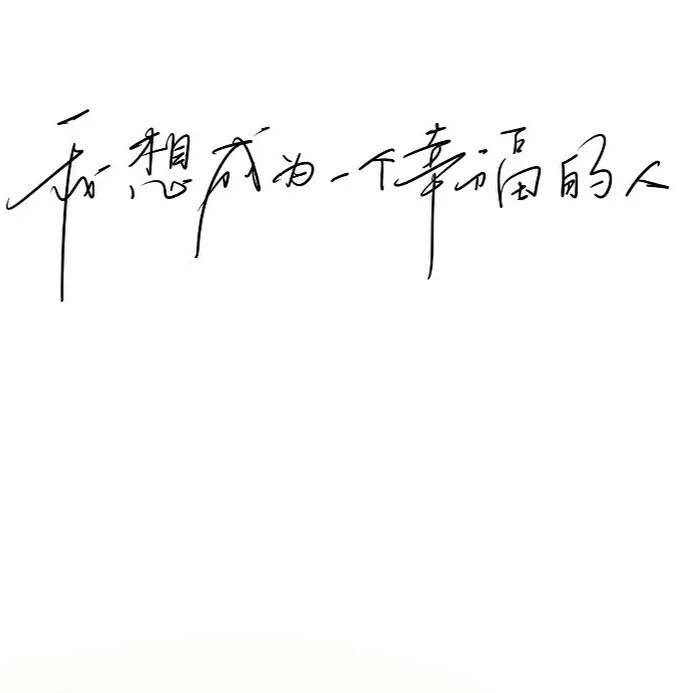 我想成为一个幸福的人